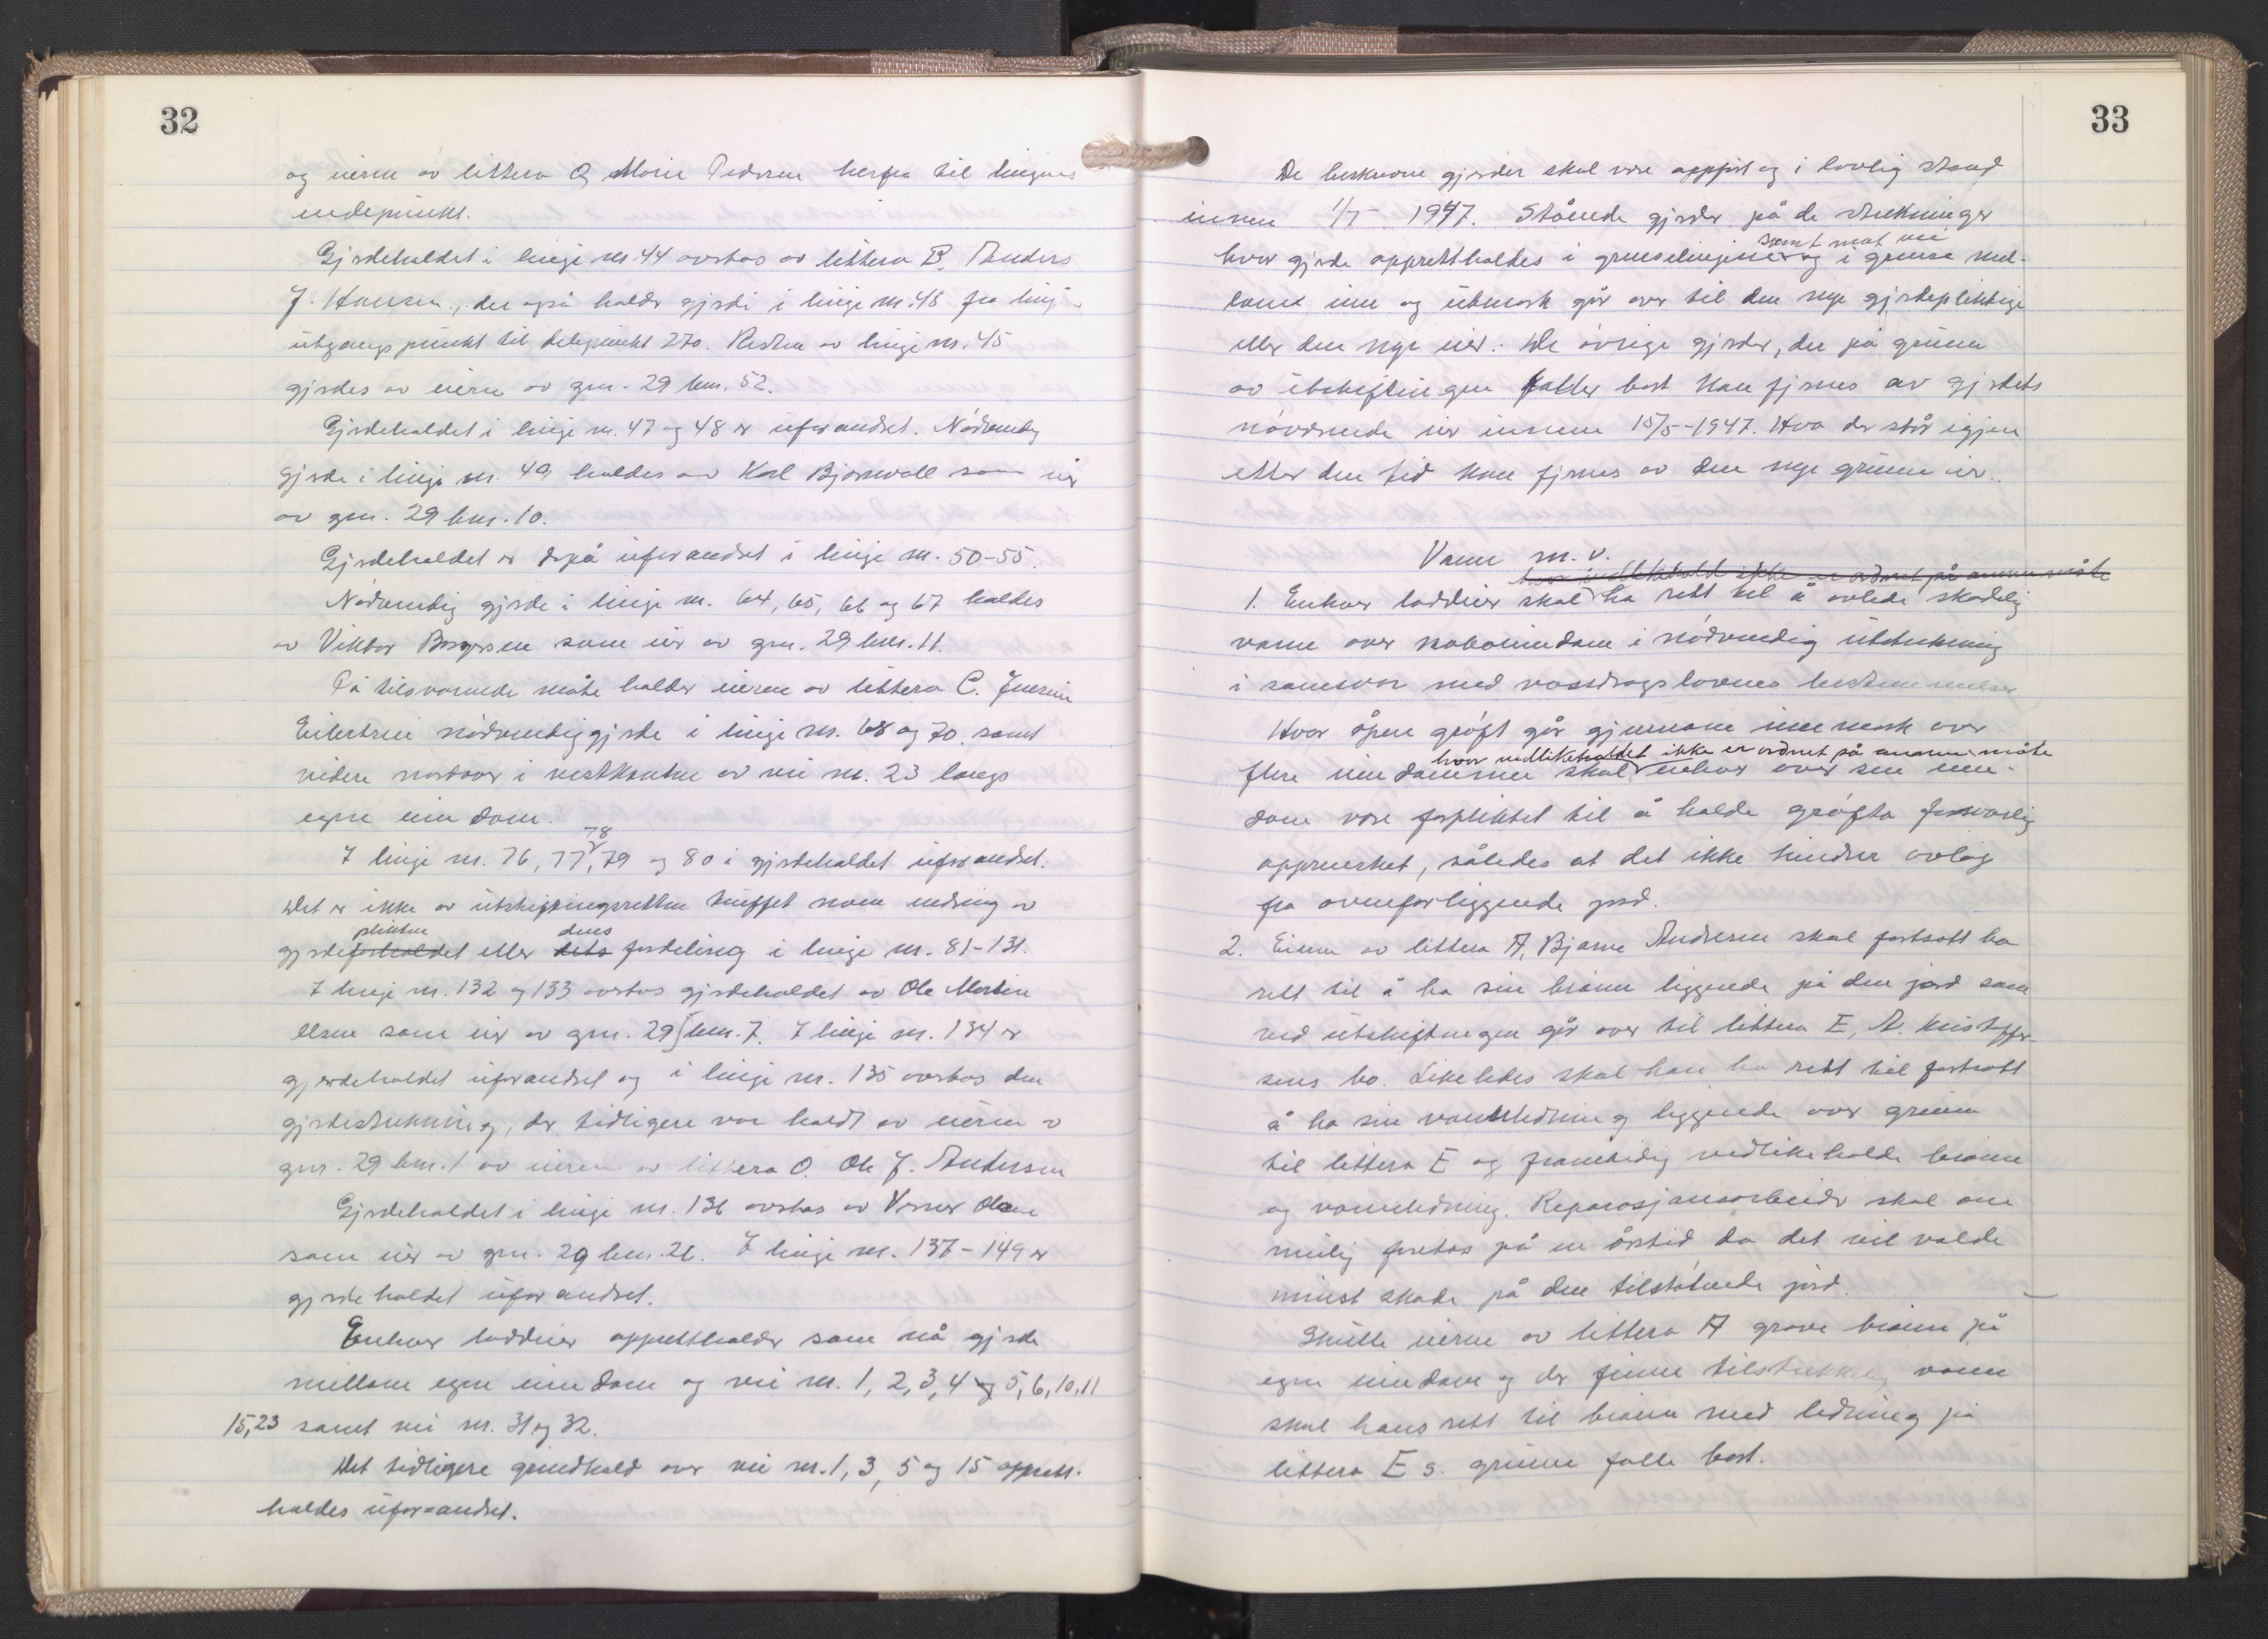 32
og eieren av littera Q Marie Pedersen herfra til linjens
endepunkt.
Gjerdeholdet i linje nr 44 overtas av littera B. Anders
J. Hansen, der også holder gjerde i linje nr. 45 fra linj-
utgangspunkt til delepunkt 270. Resten av linje nr. 45
gjerdes av eieren av gnr. 29 bnr. 52.
Gjerdeholdet i linje nr. 47 og 48 er uforandret. Nødvendig
gjerde i linje nr. 49 holdes av Karl Bjørnvall som eier
av gnr. 29 bnr. 10.
Gjerdeholdet er derpå uforandret i linje nr. 50-55.
Nødvendig gjerde i linje nr. 64, 65, 66 og 67 holdes
av Viktor Borgersen som eier av gnr. 29 bnr. 11.
På tilsvarende måte holder eieren av littera C. Jensine
Eilertsen nødvendig gjerde i linje nr. 68 og 70. samt
videre nordover i vestkanten av vei nr. 23 langs
egen eiendom.
78
I linje nr. 76, 77, 79 og 80 i gjerdeholdet uforandret.
Det er ikke av utskiftningsretten truffet noen endring av
plikten dens
gjerdeforholdet eller dets fordeling i linje nr. 81-131.
I linje nr. 132 og 133 overtas gjerdeholdet av Ole Martin
Olsen som eier av gnr. 29 bnr. 7. I linje nr. 134 er
gjerdeholdet uforandret og i linje nr. 135 overtas den
gjerdestrekning, der tidligere var holdt av eieren av
gnr. 29 bnr. 1 av eieren av littera O. Ole J. Andersen
Gjerdeholdet i linje nr. 136 overtas av Verner Olsen
som eier av gnr. 29 bnr. 26. I linje nr. 137-149 er
gjerdeholdet uforandret.
Enhver loddeier opprettholder som nå gjerde
mellom egen eiendom og vei nr. 1, 2, 3, 4 og 5, 6, 10, 11
15, 23 samt vei nr. 31 og 32.
Det tidligere grindhold over vei nr. 1, 3, 5 og 15 opprett-
holdes uforandret.
33
De beskrevne gjerder skal være oppført og i lovlig stand
innen 1/7- 1947. Stående gjerder på de strekninger
samt mot vei
hvor gjerde opprettholdes i grenselinjene og i grense mel-
lom inn og utmark går over til den nye gjerdepliktige
eller den nye eier. De øvrige gjerder, der på grunn
av utskiftningen faller bort kan fjernes av gjerdets
nåværende eier innen 15/5-1947. Hva der står igjen
etter den tid kan fjernes av den nye grunneier.
Vann m.v.
hvor vedlikehold ikke er ordnet på annen måte
1. Enhver loddeier skal ha rett til å avlede skadelig
vann over naboeiendom i nødvendig utstrekning
i samsvar med vassdragslovens bestemmelser
Hvor åpen grøft går gjennom innmark over
hvor vedlikeholdet ikke er ordnet på annen måte
flere eiendommer skal enhver over sin eien-
dom være forpliktet til å holde grøfta forsvarlig
opprensket, således at det ikke hindrer avløp
fra ovenforliggende jord.
2. Eieren av littera A, Bjarne Andresen skal fortsatt ha
rett til å ha sin brønn liggende på den jord som
ved utskiftningen går over til littera E, A. Kristoffer-
sens bo. Likeledes skal han ha rett til fortsatt
å ha sin vannledning liggende over grunn
til littera E og framtidig vedlikeholde brønn
og vannledning. Reparasjonsarbeider skal om
mulig foretas på en årstid da det vil volde
minst skade på den tilstøtende jord.
Skulle eieren av littera A grave brønn på
egen eiendom og der finne tilstrekkelig vann
skal hans rett til brønn med ledning på
littera E s. grunn falle bort.